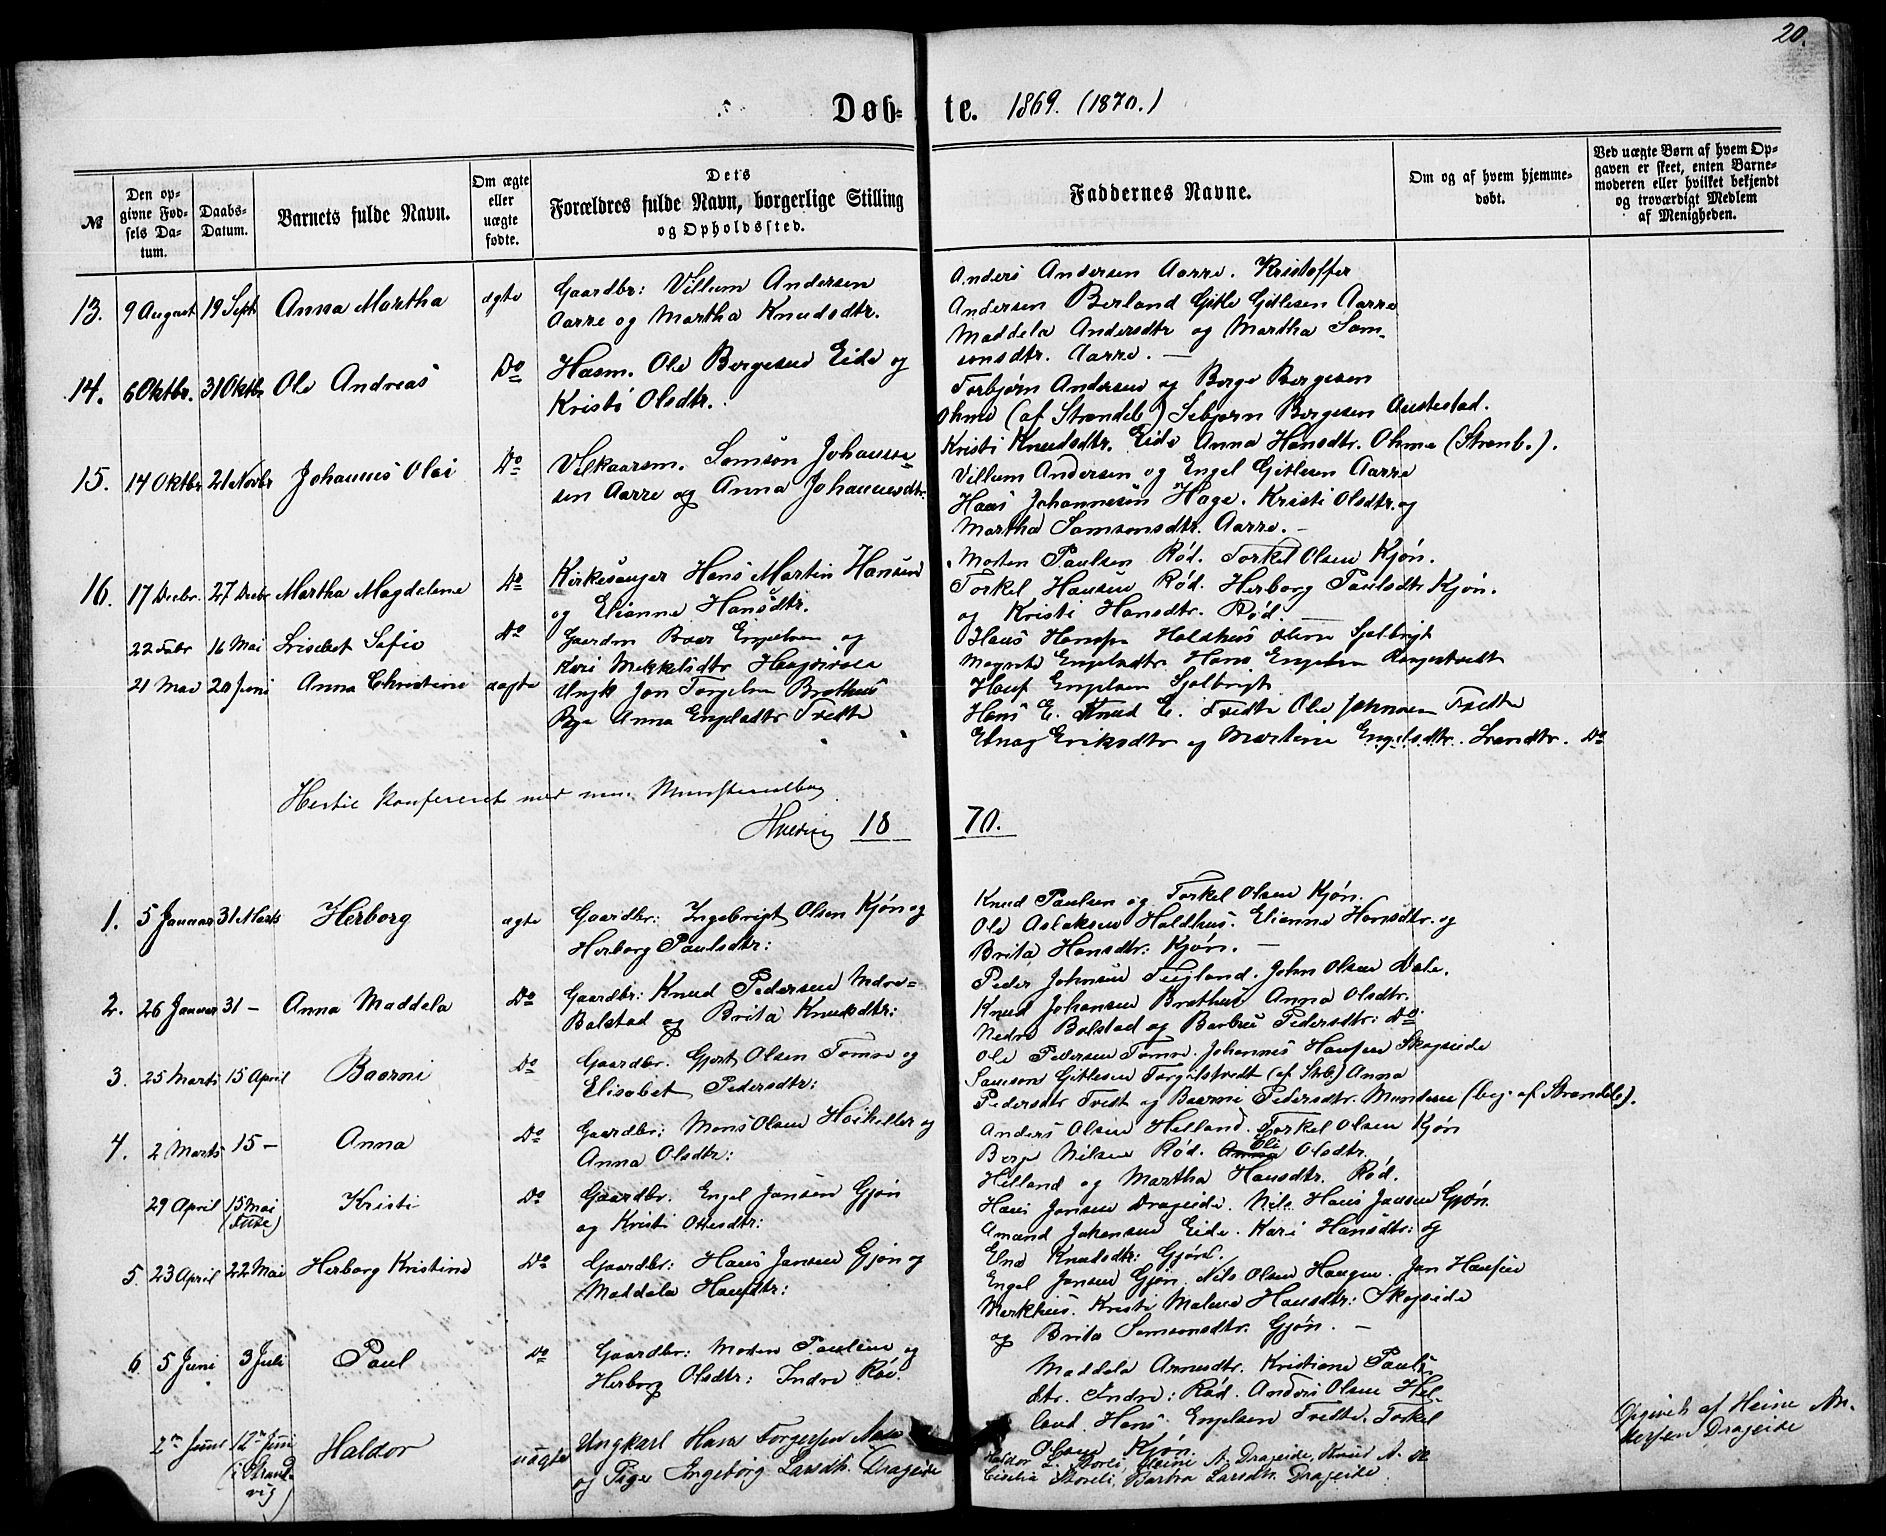 20.
Døbte. 1869. (1870.)
№
Den opgivne Fødsels Datum.
Daabs-Datum.
Barnets fulde Navn.
Om ægte eller uægte fødte.
Dets Forældres fulde Navn, borgerlige Stilling og Opholdssted.
Faddernes Navne.
Om og af hvem hjemmedøbt.
Ved uægte Børn af hvem Opgaven er skeet, enten Barnemoderen eller hvilket bekjendt og troværdigt Medlem af Menigheden.
13. 9 August 19 Sept Anna Martha ægte Gaardbr: Villum Andersen
Aarre og Martha Knudsdtr.
Anders Andersen Aarre. Kristoffer
Andersen Berland Gitle Gitlesen Aarre
Maddela Andersdtr og Martha Sam-
sonsdtr. Aarre. —
14. 6 Oktbr. 31 Oktbr Ole Andreas Do Husm. Ole Børgesen Eide og
Kristi Olsdtr.
Torbjørn Andersen og Børge Børgesen
Ohma (af Strandeb.) Sebjørn Børgesen Austestad.
Kristi Knudsdtr. Eide Anna Hansdtr. Ohma (Stranb.).
15. 14 Oktbr 21 Novbr Johannes Olai Do Vilkaarsm. Samson Johanne-
sen Aarre og Anna Johannesdtr.
Villum Andersen og Engel Gitlesen Aarre
Hans Johannesen Hage. Kristi Olsdtr. og
Martha Samsonsdtr. Aarre. —
16. 17 Decbr. 27 Decbr Martha Magdelene Do Kirkesanger Hans Martin Hansen
og Elianna Hansdtr.
Morten Paulsen Rød. Torkel Olsen Kjøn.
Torkel Hansen Rød. Herborg Paulsdtr Kjøn.
og Kristi Hansdtr. Rød. —
22 Febr 16 Mai Sofie Do Gaardm Engelsen og
Kari Mikkelsdtr
Hans Hansen Holdhus
Engelsdtr. Hans Engelsen
Engelsen
21 Mai 20 Juni Anna Christine uægte Ungk Jon Torgelsen Brothus
Pige Anna Engelsdtr Tvedte
Hans E. Knud E. Tvedte Ole Johnsen Tvedte
Eriksdtr og Martine Engelsdtr. Do
Hertil konfereret med min Ministerialbog
1870.
1. 5 Januar 31 Marts Herborg ægte Gaardbr: Ingebrigt Olsen Kjøn og
Herborg Paulsdtr:
Knud Paulsen og Torkel Olsen Kjøn.
Ole Aslaksen Holdhus. Elianne Hansdtr. og
Brita Hansdtr: Kjøn. —
2. 26 Januar 31 — Anna Maddela Do Gaardbr: Knud Pedersen Nedre-
Bolstad og Brita Knudsdtr:
Peder Johnsen Teigland. John Olsen Dale.
Knud Johansen Brothus Anna Olsdtr.
Nedre Bolstad og Barbra Pedersdtr: Do.
3. 25 Marts 15 April Baarni Do Gaardbr. Gjert Olsen Tomre og
Elisabet Pedersdtr:
Ole Pedersen Tomre. Johannes Hansen Skogseide
Samson Gitlesen (af Strb.) Anna
Pedersdtr Tvedt og Baarni Pedersdtr. (beg. af Strandeb.).
4. 2 Marts 15 — Anna Do Gaardbr: Mons Olsen og
Anna Olsdtr:
Anders Olsen Helland. Torkel Olsen Kjøn
Børge Nilsen Rød. Eli Olsdtr.
Helland og Martha Hansdtr. Rød.
29 April 15 Mai Kristi Do Gaardbr. Engel Jansen Gjøn
(Fuse) og Kristi Olsdtr:
Hans Jansen Drageide. Nils Hans Jansen Gjøn.
Amund Johansen Eide. Kari Hansdtr: og
Knudsdtr: Gjøn.
5. 23 April 22 Mai Herborg Kristine Do Gaardbr: Hans Jansen Gjøn og
Maddela Hansdtr:
Engel Jansen Gjøn. Nils Olsen Haugen. Jan Hansen
Kristi Malene Hansdtr: Skogseide
og Brita Samsonsdtr. Gjøn. —
6 5 Juni 3 Juli Paul Do Gaardbr: Morten Paulsen og
Herborg Olsdtr: Indre Rød.
Maddela Arnesdtr. Kristiane Pauls-
dtr. Indre: Rød. Anders Olsen Hel-
land. Hans Engelsen Tvedte. Torkel
Olsen Kjøn.
2 Juni 12 Juni Haldor uægte Ungkarl Hans Torgersen
(i Strandvig) og Pige Ingeborg Larsdtr. Drageide
Haldor L. Storeli, Heine A. Drageide, Knud A.
Storeli, Bartha Larsdtr. Drageide.
Opgivet af Heine An-
dersen Drageide